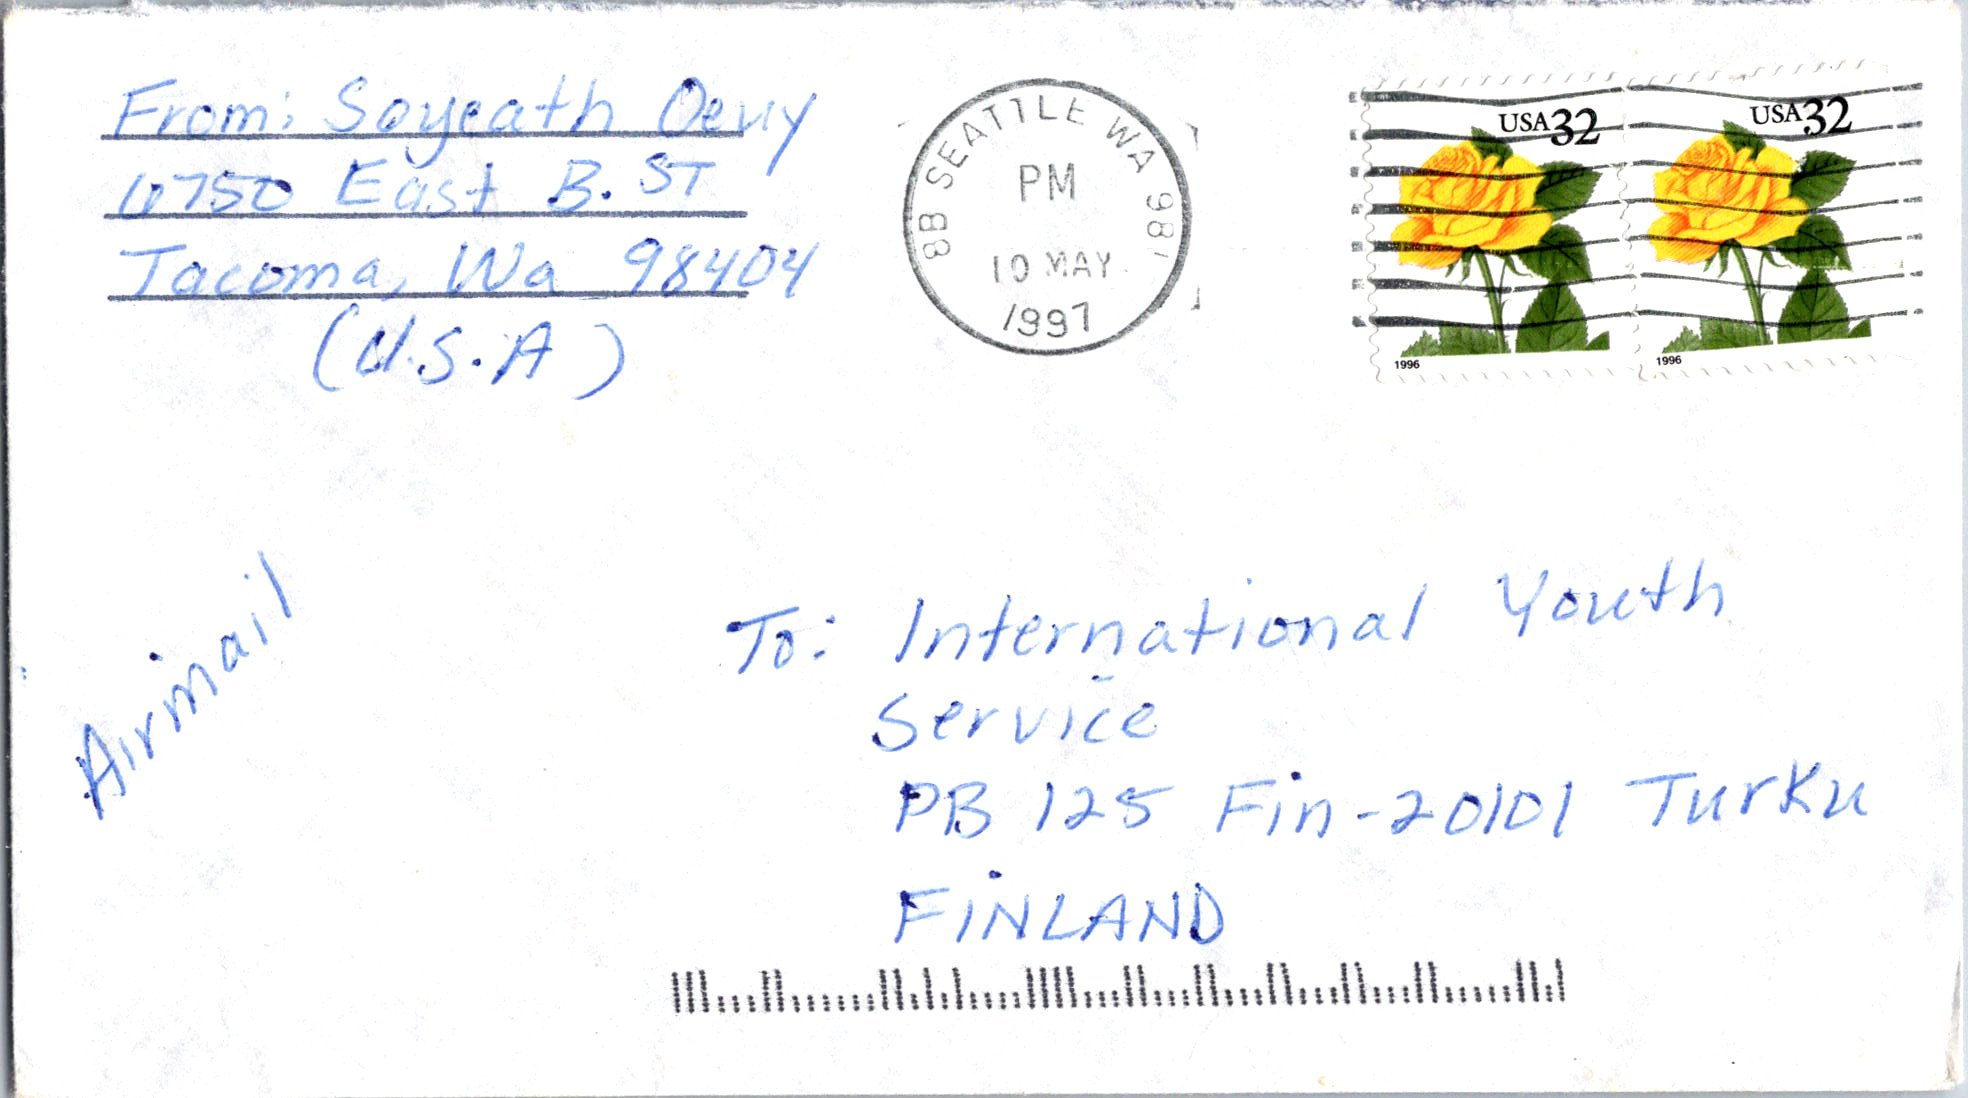 From: Soyeath Oeuy
6750 East B. ST
Tacoma, Wa 98404
(U.S.A)
8B SEATTLE WA 981
PM
10 MAY
1997
USA 32
USA 32
1996
1996
Airmail
To: International Youth
Service
PB 125 Fin-20101 Turku
FINLAND